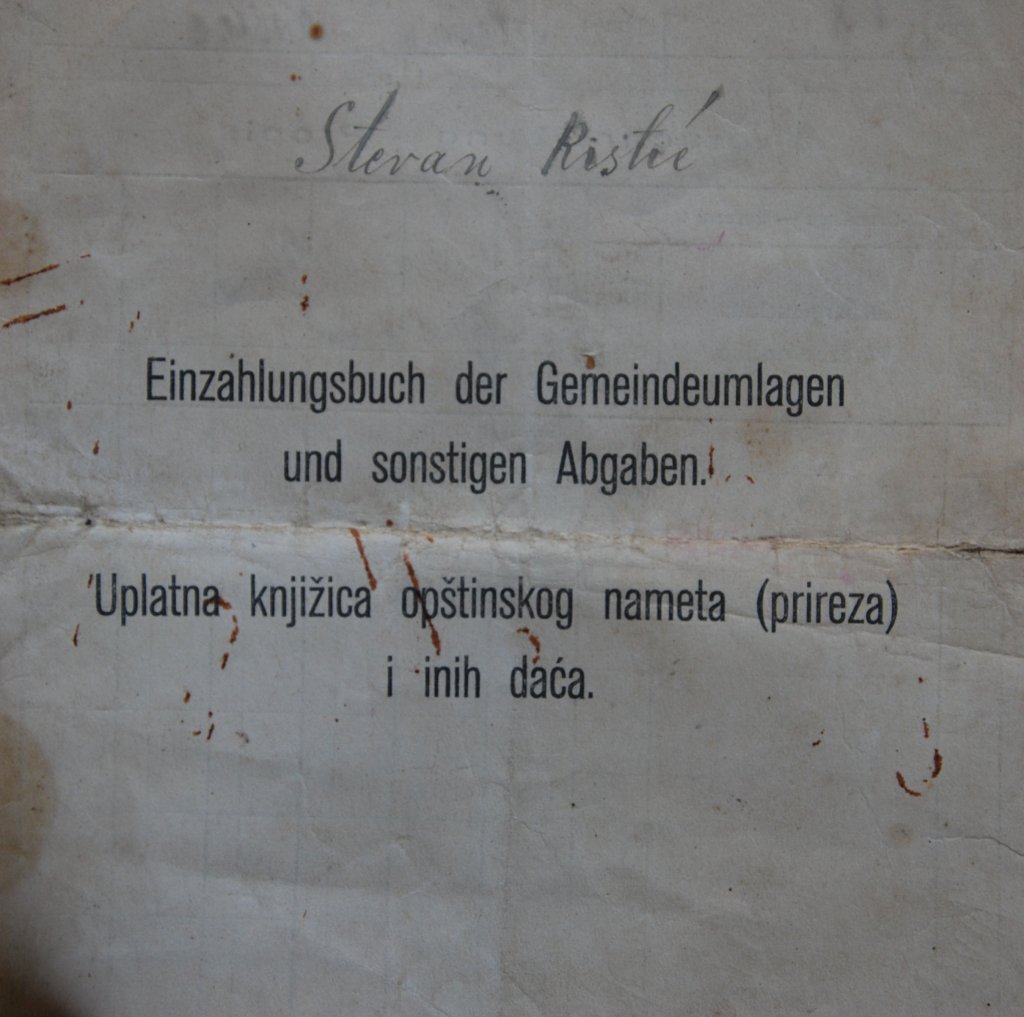 Stevan Ristić
Einzahlungsbuch der Gemeindeumlagen
und sonstigen Abgaben.
Uplatna knjižica opštinskog nameta (prireza)
i inih daća.